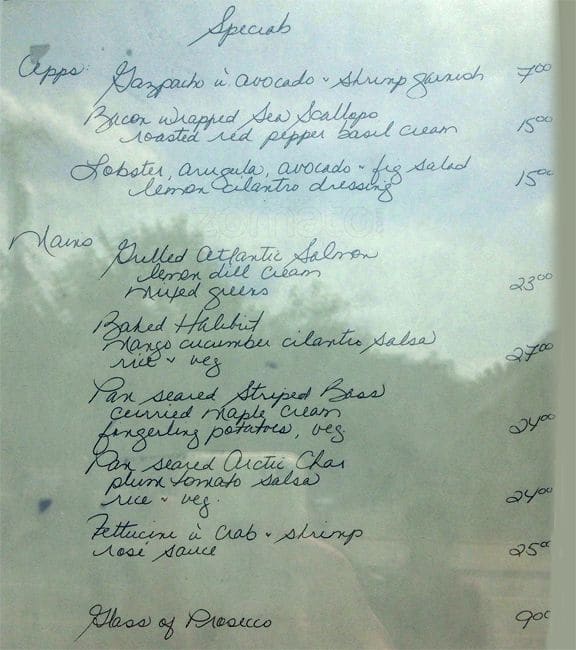 Specials
Apps: Gazpacho ū avocado + shrimp garnish 7⁰⁰
Bacon wrapped Sea Scallops
roasted red pepper basil cream 15⁰⁰
Lobster, arugula, avocado + fig salad
lemon cilantro dressing 15⁰⁰
zomato
Mains Grilled Atlantic Salmon
lemon dill cream
mixed greens 23⁰⁰
Baked Halibut
Mango cucumber cilantro salsa
rice + veg 27⁰⁰
Pan seared Striped Bass
curried maple cream
fingerling potatoes, veg. 24⁰⁰
Pan seared Arctic Char
plum tomato salsa
rice + veg. 24⁰⁰
Fettucini ū crab + shrimp
rosé sauce 25⁰⁰
Glass of Prosecco 9⁰⁰